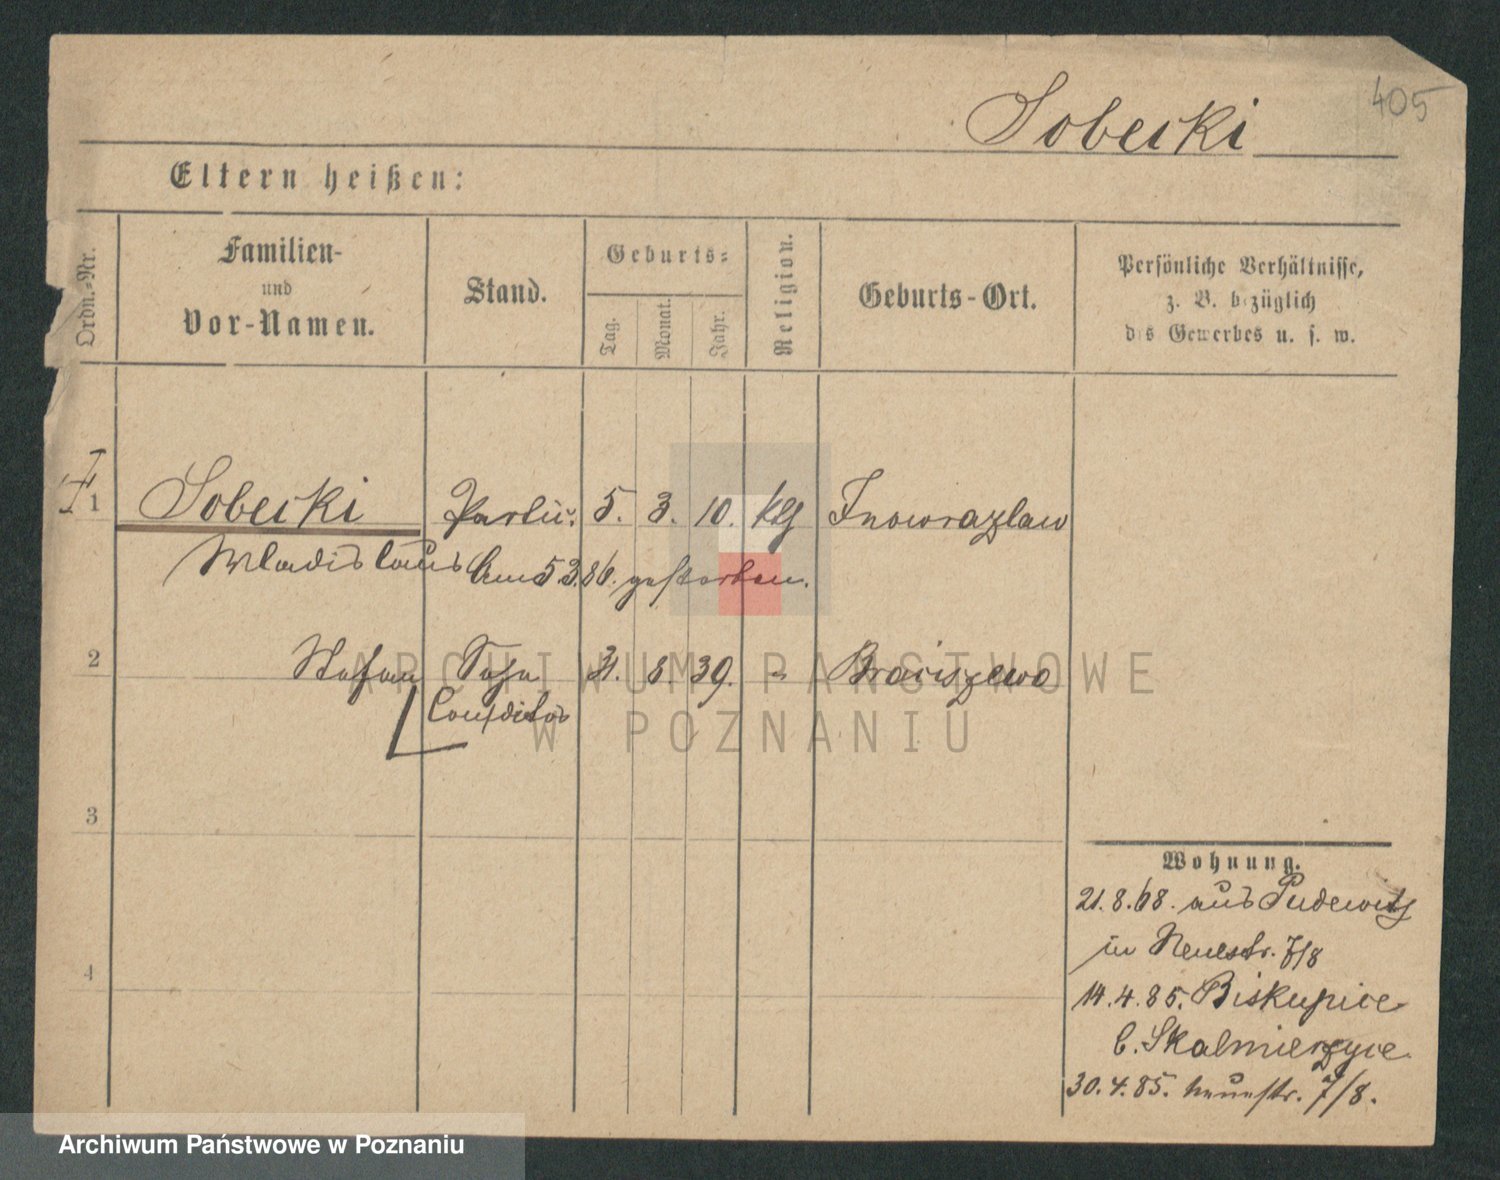 405
Sobecki
Eltern heißen:
Ordn.-Nr.
Familien-
und
Vor-Namen.
Stand.
Geburts-
Tag.
Monat.
Jahr.
Religion.
Geburts-Ort.
Persönliche Verhältnisse,
z. B. bezüglich
des Gewerbes u. s. w.
1 Sobecki Partic. 5. 3. 10. klg Inowrazlaw
Wladislaus Am 5 3.86. gestorben.
2 Stefan Sohn 31. 8. 39. " Braciszewo
Conditor
3
4
Wohnung.
21.8.68. aus Pudewitz
in Neuestr. 7/8
14.4.85. Biskupice
b. Skalmierzyce
30.4.85. Neuestr. 7/8.
ARCHIWUM PAŃSTWOWE
W POZNANIU
Archiwum Państwowe w Poznaniu